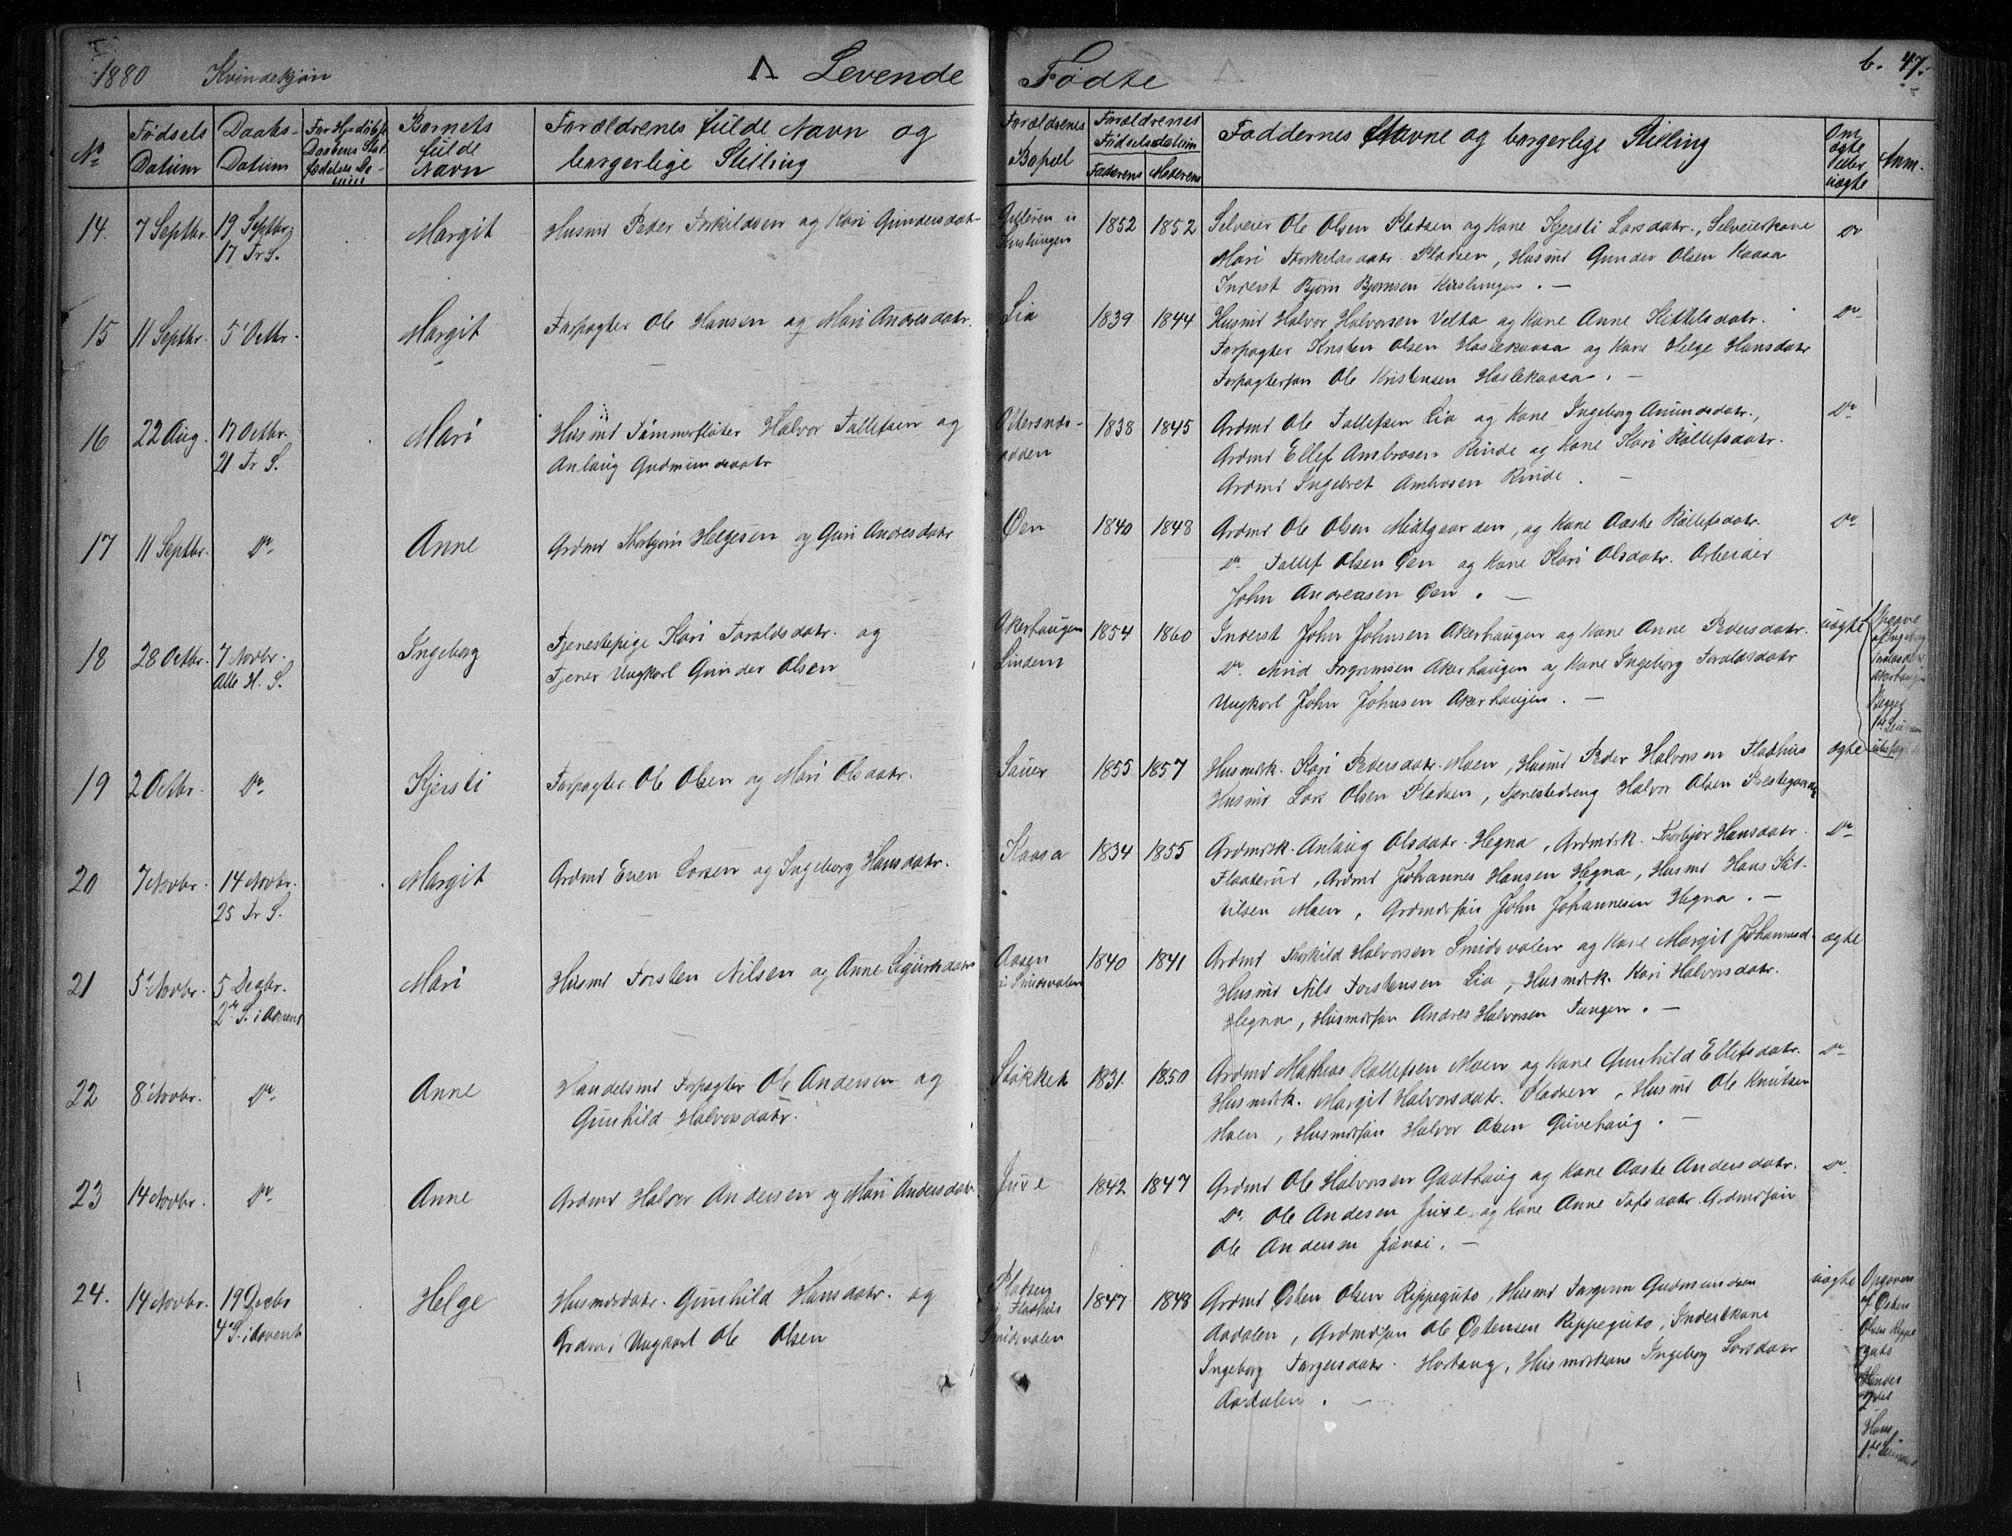 1880 Kvindekjøn A Levende Fødte b. 47.
No Fødsels Datum Daabs-Datum Barnets fulde Navn Forældrenes fulde Navn og borgerlige Stilling Forældrenes Bopæl Forældrenes Fødselsdatum Faderens Moderens Faddernes Navne og borgerlige Stilling Om ægte eller uægte Anm.
14. 7 Septbr. 19 Septbr. Margit Husmd Peder Torkildsen og Kari Gundersdatr 1852 1852 Selveier Ole Olsen Pladsen og Kone Kjersti Larsdatr., Selveierkone Do
17 Tr S. Mari Torkildsdatr. Pladsen, Husmd Gunder Olsen Kaasa
Inderst Bjørn Bjørnsen
15 11 Septbr. 5' Octbr. Margit Forpagter Ole Hansen og Mari Andresdatr. Lia 1839 1844 Husmd Halvor Halvorsen Velta og Kone Anne Kittelsdatr. Do
Forpagter Kristen Olsen Haslekaasa og Kone Helge Hansdatr
Forpagtersøn Ole Kristensen Haslekaasa. —
16 22 Aug. 17 Octbr. Mari Husmd Tømmerfløter Halvor Tallefsen og 1838 1845 Grdmd Ole Tallefsen Lia og Kone Ingeborg Amundsdatr., Do
21 Tr S. Anlaug Gudmundsdatr odden Grdmd Ellef Ambrosen Rinde og Kone Kari Rollefsdatr.
Grdmd Ingebret Ambrosen Rinde. —
17 11 Septbr. Do Anne Grdmd Torbjørn Helgesen og Guri Andresdatr Øen 1840 1848 Grdmd Ole Olsen Midtgaarden, og Kone Aaste Rollefsdatr. Do
Do Tallef Olsen Øen og Kone Kari Olsdatr. Arbeider
John Andreasen Øen. —
18 28 Octbr. 7 Novbr. Ingeborg Tjenestepige Kari Taraldsdatr. og Akerhaugen 1854 1860 Inderst John Johnsen Akerhaugen og Kone Anne Pedersdatr. uægte Opgave
Alle H. S. Tjener Ungkarl Gunder Olsen Lindem Do. Arnid Torgrimsen Akerhaugen og Kone Ingeborg Taraldsdatr af Ingeborg
Ungkarl John Johnsen Akerhaugen. — Taraldsdatr Akerhaugen
Begges 1ste
19 2 Octbr. Do Kjersti Forpagter Ole Olsen og Mari Olsdatr. Sauer 1855 1857 Husmdk. Kari Pedersdatr. Moen, Husmd Peder Halvorsen Fladhus ægte
Husmd Lars Olsen Pladsen, Tjenestedreng Halvor Olsen Prestegaarden
20 7 Novbr. 14 Novbr. Margit Grdmd Even Larsen og Ingeborg Hansdatr. Kaasa 1834 1855 Grdmdk. Anlaug Olsdatr. Hegna, Grdmdk. Thorbjør Hansdatr. Do
25 Tr S. Flaaterud, Grdmd Johannes Hansen Hegna, Husmd Hans Kit-
tilsen Moen, Grdmdsøn John Johannesen Hegna. —
21 5' Novbr. 5 Decbr. Mari Husmd Torsten Nilsen og Anne Sigurdsdatr Aasen 1840 1841 Grdmd Thorkild Halvorsen Smidsvalen og Kone Margit Johannesd. ægte
2den S. i Advent i Smidsvalen Husmd Nils Torstensen Lia, Husmdk. Kari Halvorsdatr.
Hegna, Husmdsøn Andres Halvorsen Tangen. —
22 8' Novbr. Do Anne Handelsmd Forpagter Ole Andersen og Stokket 1831. 1850 Grdmd Mathias Rollefsen Moen og Kone Gunhild Ellefsdatr. Do
Gunhild Halvorsdatr. Husmdk. Margit Halvorsdatr. Pladsen, Husmd Ole Knutsen
Moen, Husmdsøn Halvor Olsen Guvehaug. —
23 14 Novbr. Do Anne Grdmd Halvor Andersen og Mari Andersdatr Juve 1842 1847 Grdmd Ole Halvorsen Gaathaug og Kone Aaste Andersdatr. Do
Do. Ole Andesen Juve og Kone Anne Tofsdatr. Grdmdsøn
Ole Andersen. —
24. 14 Novbr. 19 Decbr Helge Husmdsdatr. Gunhild Hansdatr. og Pladsen 1847 1848 Grdmd Østen Olsen Rippeguto, Husmd Torgrim Gudmundsen uægte Opgaven
4de S. i Advent Grdmd Ungkarl Ole Olsen i Fladhus Aadalen, Grdmdsøn Ole Østensen Rippeguto, Inderstkone af Østen
Smidsvalen Ingeborg Torgersdatr. Hortaug, Husmdskone Ingeborg Larsdatr Olsen Rippeguto
Aadalen. — Hendes 2det
Hans 1ste